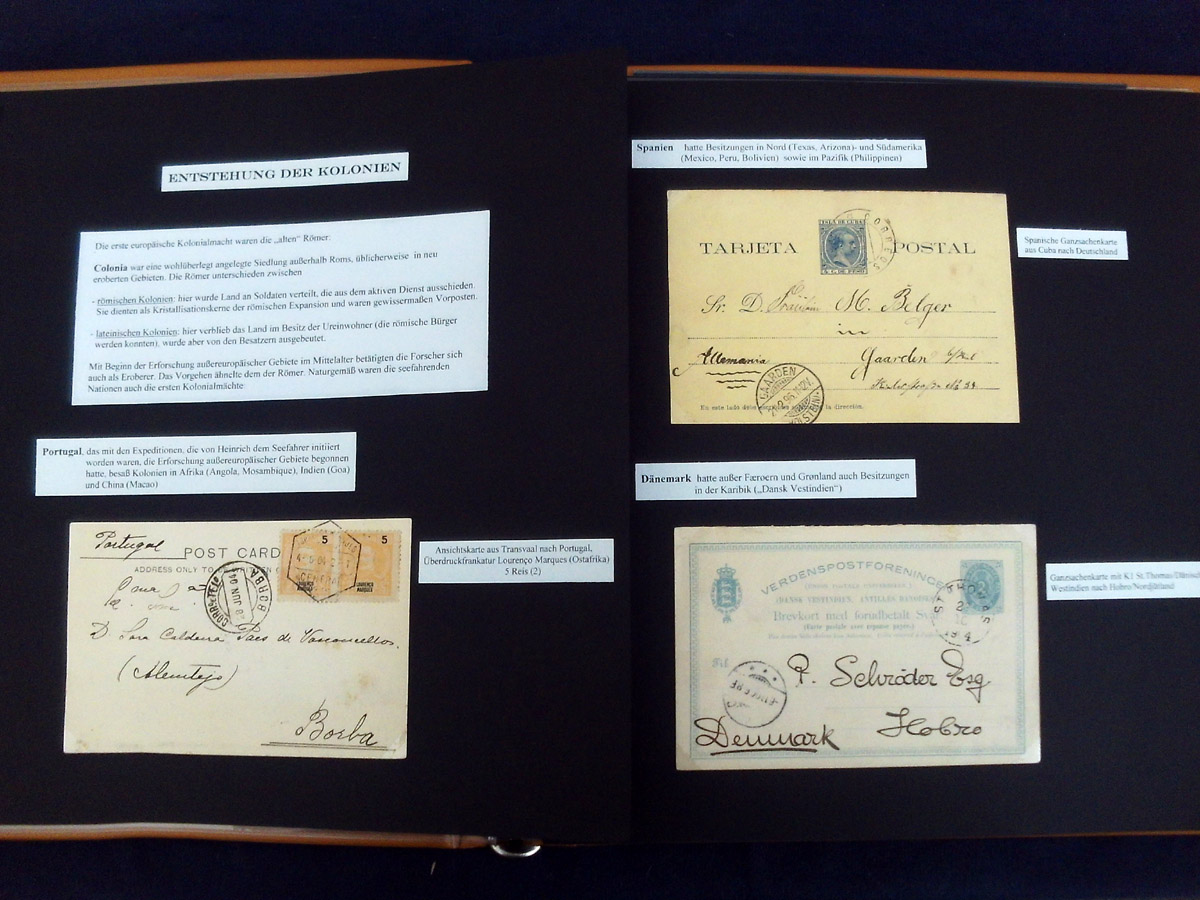 ENTSTEHUNG DER KOLONIEN
Die erste europäische Kolonialmacht waren die „alten“ Römer:
Colonia war eine wohlüberlegt angelegte Siedlung außerhalb Roms, üblicherweise in neu
eroberten Gebieten. Die Römer unterschieden zwischen
- römischen Kolonien: hier wurde Land an Soldaten verteilt, die aus dem aktiven Dienst ausschieden.
Sie dienten als Kristallisationskerne der römischen Expansion und waren gewissermaßen Vorposten.
- lateinischen Kolonien: hier verblieb das Land im Besitz der Ureinwohner (die römische Bürger
werden konnten), wurde aber von den Besatzern ausgebeutet.
Mit Beginn der Erforschung außereuropäischer Gebiete im Mittelalter betätigten die Forscher sich
auch als Eroberer. Das Vorgehen ähnelte dem der Römer. Naturgemäß waren die seefahrenden
Nationen auch die ersten Kolonialmächte:
Portugal, das mit den Expeditionen, die von Heinrich dem Seefahrer initiiert
worden waren, die Erforschung außereuropäischer Gebiete begonnen
hatte, besaß Kolonien in Afrika (Angola, Mosambique), Indien (Goa)
und China (Macao)
Portugal
POST CARD
ADDRESS ONLY TO
5
5
LOURENÇO MARQUES
LOURENÇO MARQUES
BORBA
JUN 04
D. Sara Caldeira Paes de Vasconcellos.
(Alemtejo)
Borba
Ansichtskarte aus Transvaal nach Portugal,
Überdruckfrankatur Lourenço Marques (Ostafrika)
5 Reis (2)
Spanien hatte Besitzungen in Nord (Texas, Arizona)- und Südamerika
(Mexico, Peru, Bolivien) sowie im Pazifik (Philippinen)
ISLA DE CUBA
CORREOS
TARJETA POSTAL
Sr. D. Fräulein M. Belger
in
Allemania
Gaarden
GAARDEN
En este lado debe la dirección.
Spanische Ganzsachenkarte
aus Cuba nach Deutschland
Dänemark hatte außer Færoern und Grønland auch Besitzungen
in der Karibik („Dansk Vestindien“)
VERDENSPOSTFORENINGEN
(DANSK VESTINDIEN, ANTILLES DANOISES)
Brevkort med forudbetalt Svar
Til
ST. THOMAS
P. Schröder Esq
Hobro
Denmark
Ganzsachenkarte mit K1 St.Thomas/Dänisch
Westindien nach Hobro/Nordjütland